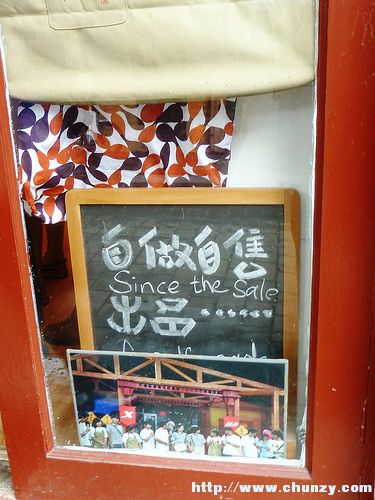 自做自售
Since the Sale
出品......
http://www.chunzy.com